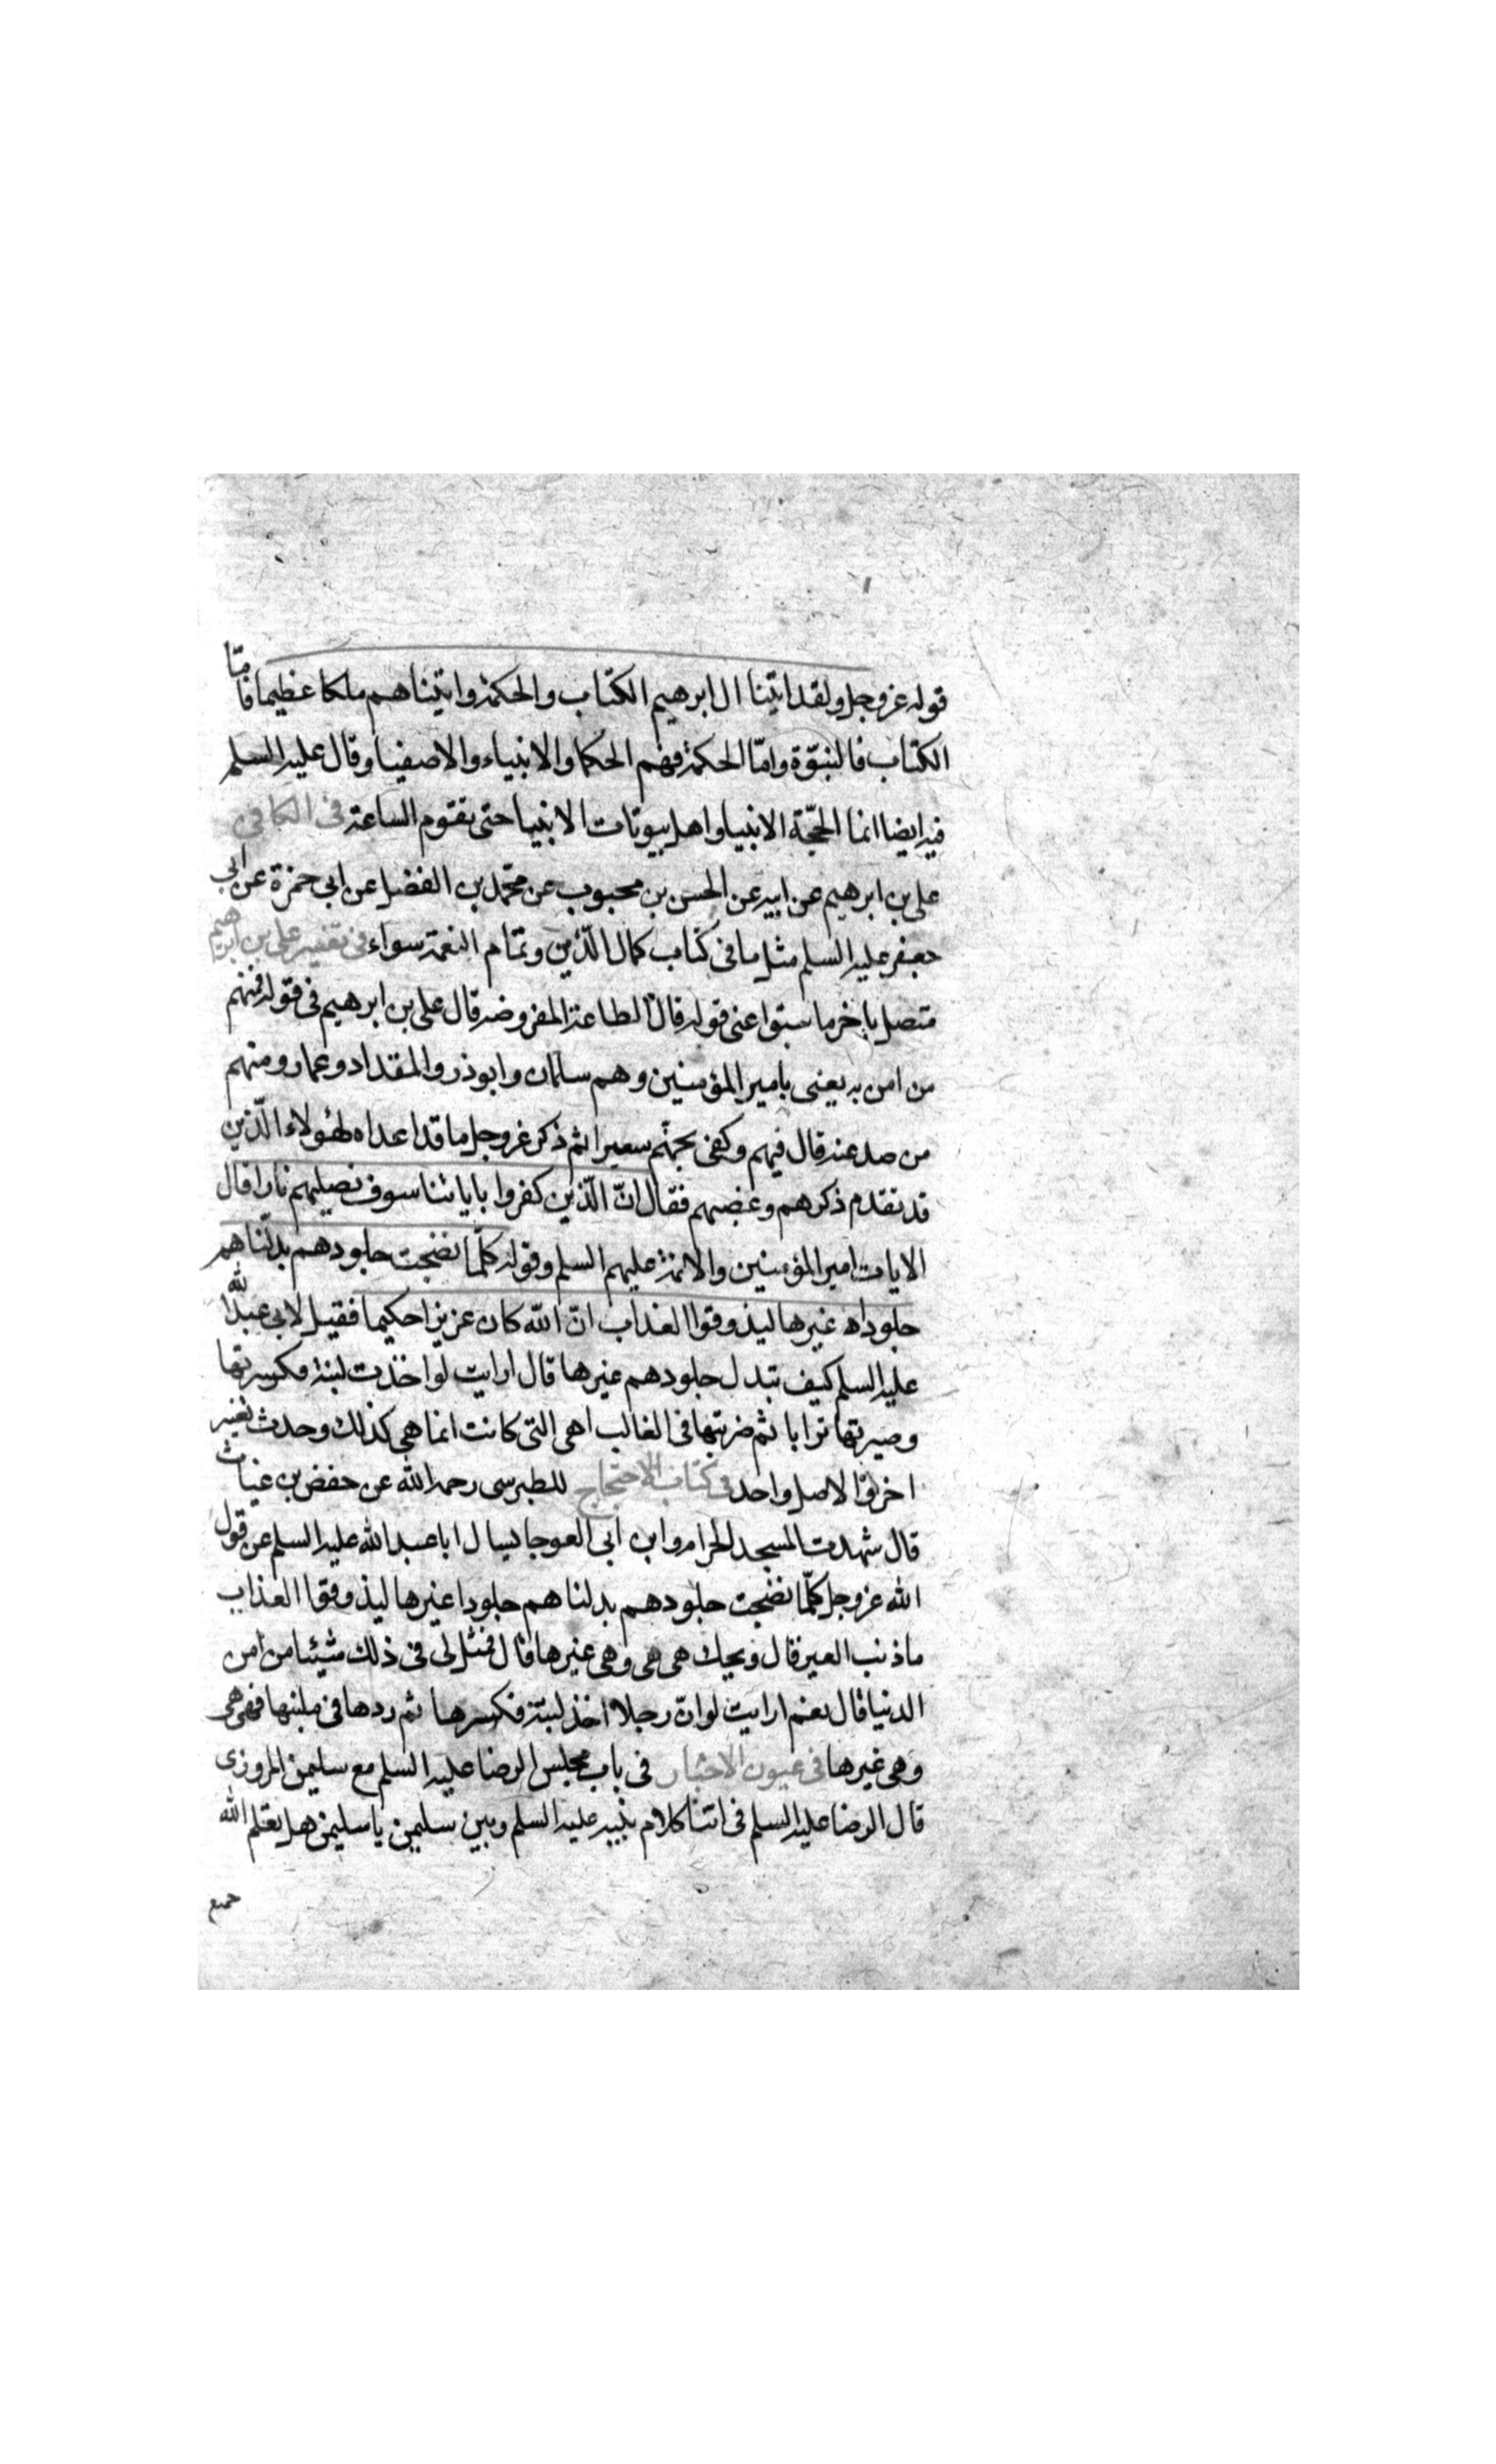 قوله عز وجل ولقد اتينا ال ابرهيم الكتاب والحكمة واتيناهم ملكا عظيما فامّا
الكتاب فالنبوّة وامّا الحكمة فهم الحكما والانبياء والاصفيا وقال عليه السلم
فيه ايضا انما الحجّة الانبيا واهل بيوتات الانبيا حتى تقوم الساعة فى الكافى
على بن ابرهيم عن ابيه عن الحسن بن محبوب عن محمّد بن الفضل عن ابى حمزة عن ابى
جعفر عليه السلم مثل ما فى كتاب كمال الدّين وتمام النعمة سواء فى تفسير على بن ابرهيم
متصل باخر ما سبق اعنى قوله قال الطاعة المفروضه قال على بن ابرهيم فى قوله فمنهم
من امن به يعنى بامير المؤمنين وهم سلمان وابوذر والمقداد وعمار ومنهم
من صد عنه قال فيهم وكفى بجهنّم سعيرا ثم ذكر عز وجل ما قد اعداه لهؤلاء الّذين
قد تقدم ذكرهم وغضبهم فقال انّ الّذين كفروا باياتنا سوف نصليهم نارا قال
الايات امير المؤمنين والائمة عليهم السلم وقوله كلّما نضجت جلودهم بدلّناهم
جلودا غيرها ليذوقوا العذاب انّ الله كان عزيزا حكيما فقيل لابى عبد الله
عليه السلم كيف تبدل جلودهم غيرها قال ارايت لو اخذت لبنة فكسرتها
وصيرتها ترابا ثم ضربتها فى القالب اهى التى كانت انما هى كذلك وحدث تغير
اخر والاصل واحد فى كتاب الاحتجاج للطبرسى رحمه الله عن حفض بن غياث
قال شهدت المسجد الحرام وابن ابى العوجا يسال ابا عبد الله عليه السلم عن قول
الله عز وجل كلّما نضجت جلودهم بدلناهم جلودا غيرها ليذوقوا العذاب
ما ذنب الغير قال ويحك هى هى وهى غيرها قال فمثل لى فى ذلك شيئا من امر
الدنيا قال نعم ارايت لو انّ رجلا اخذ لبنة فكسرها ثم ردها فى ملبنها فهى هى
وهى غيرها فى عيون الاخبار فى باب مجلس الرضا عليه السلم مع سليمن المروزى
قال الرضا عليه السلم فى اثنا كلام بينه عليه السلم وبين سليمن يا سليمن هل يعلم الله
جميع